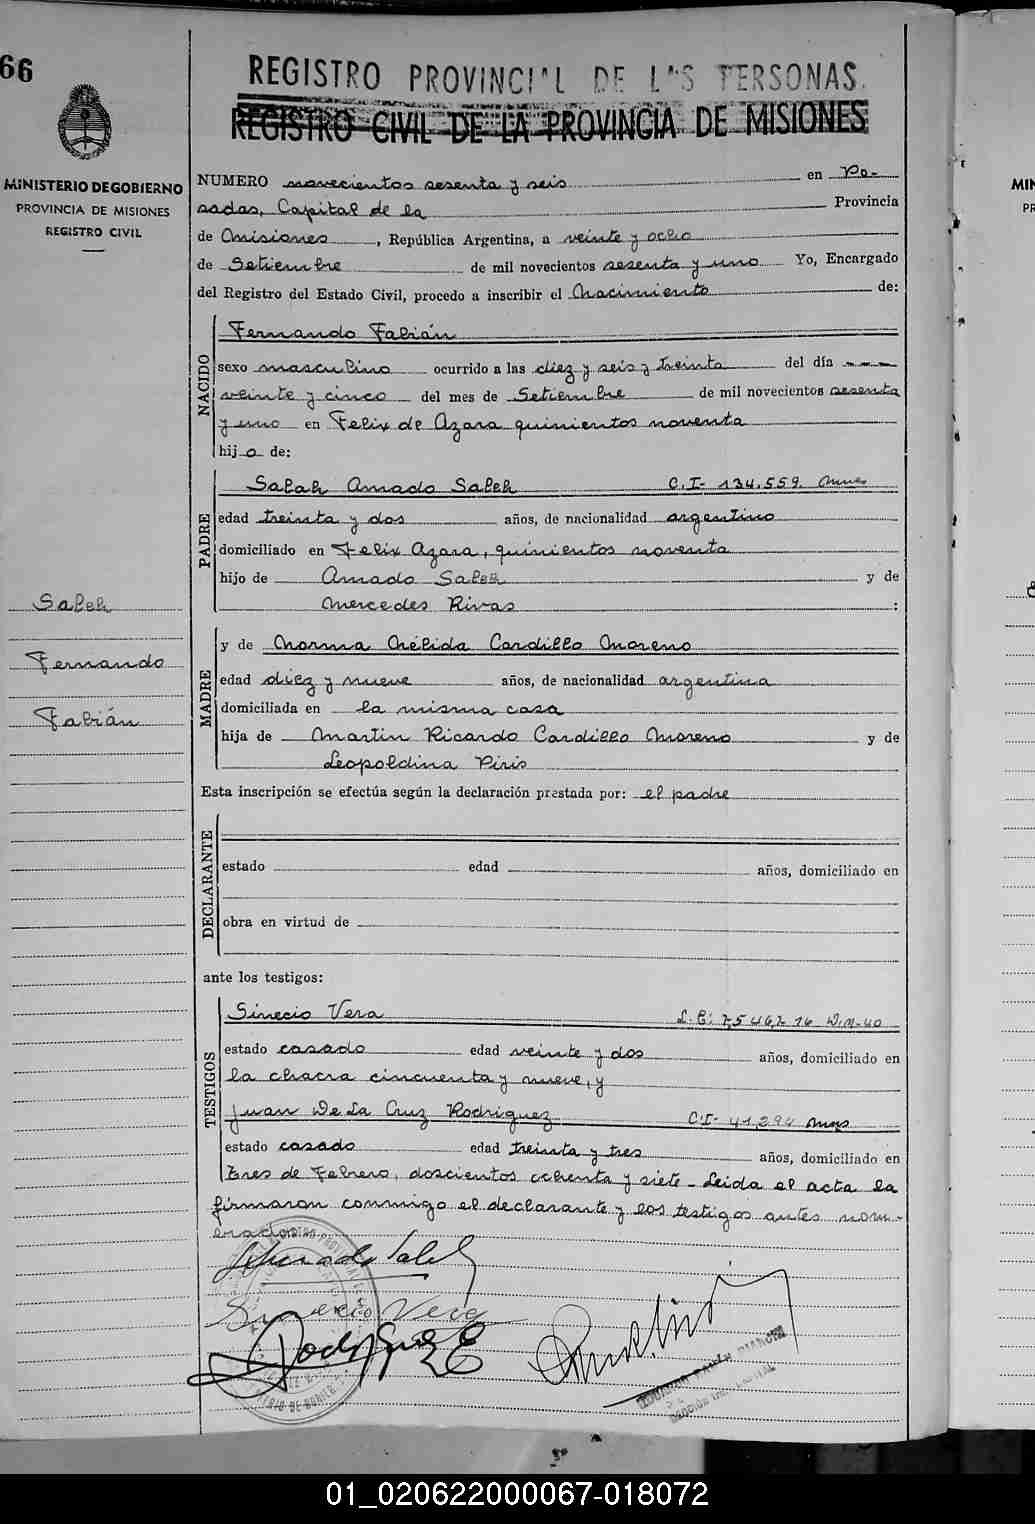 66
REGISTRO PROVINCIAL DE LAS PERSONAS
REGISTRO CIVIL DE LA PROVINCIA DE MISIONES
MINISTERIO DE GOBIERNO
PROVINCIA DE MISIONES
REGISTRO CIVIL
NUMERO novecientos sesenta y seis en Po-
sadas, Capital de la Provincia
de Misiones, República Argentina, a veinte y ocho
de Setiembre de mil novecientos sesenta y uno Yo, Encargado
del Registro del Estado Civil, procedo a inscribir el Nacimiento de:
NACIDO
Fernando Fabián
sexo masculino ocurrido a las diez y seis y treinta del día ---
veinte y cinco del mes de Setiembre de mil novecientos sesenta
y uno en Felix de Azara quinientos noventa
hijo de:
PADRE
Salah Amado Saleh C.I- 134.559. Mnes
edad treinta y dos años, de nacionalidad argentino
domiciliado en Felix Azara, quinientos noventa
hijo de Amado Saleh y de
Mercedes Rivas :
Saleh
Fernando
Fabián
MADRE
y de Norma Nélida Cardillo Moreno
edad diez y nueve años, de nacionalidad argentina
domiciliada en la misma casa
hija de Martin Ricardo Cardillo Moreno y de
Leopoldina Piris
Esta inscripción se efectúa según la declaración prestada por: el padre
DECLARANTE
estado edad años, domiciliado en
obra en virtud de
ante los testigos:
TESTIGOS
Sinecio Vera L.E: 7,546,216 D.M-40
estado casado edad veinte y dos años, domiciliado en
la chacra cincuenta y nueve, y
Juan De La Cruz Rodriguez C.I- 41,294 Mnes
estado casado edad treinta y tres años, domiciliado en
tres de Febrero, doscientos ochenta y siete - Leida el acta la
firmaron conmigo el declarante y los testigos antes nom-
brados
Saleh
Sinecio Vera
Rodriguez
01_020622000067-018072